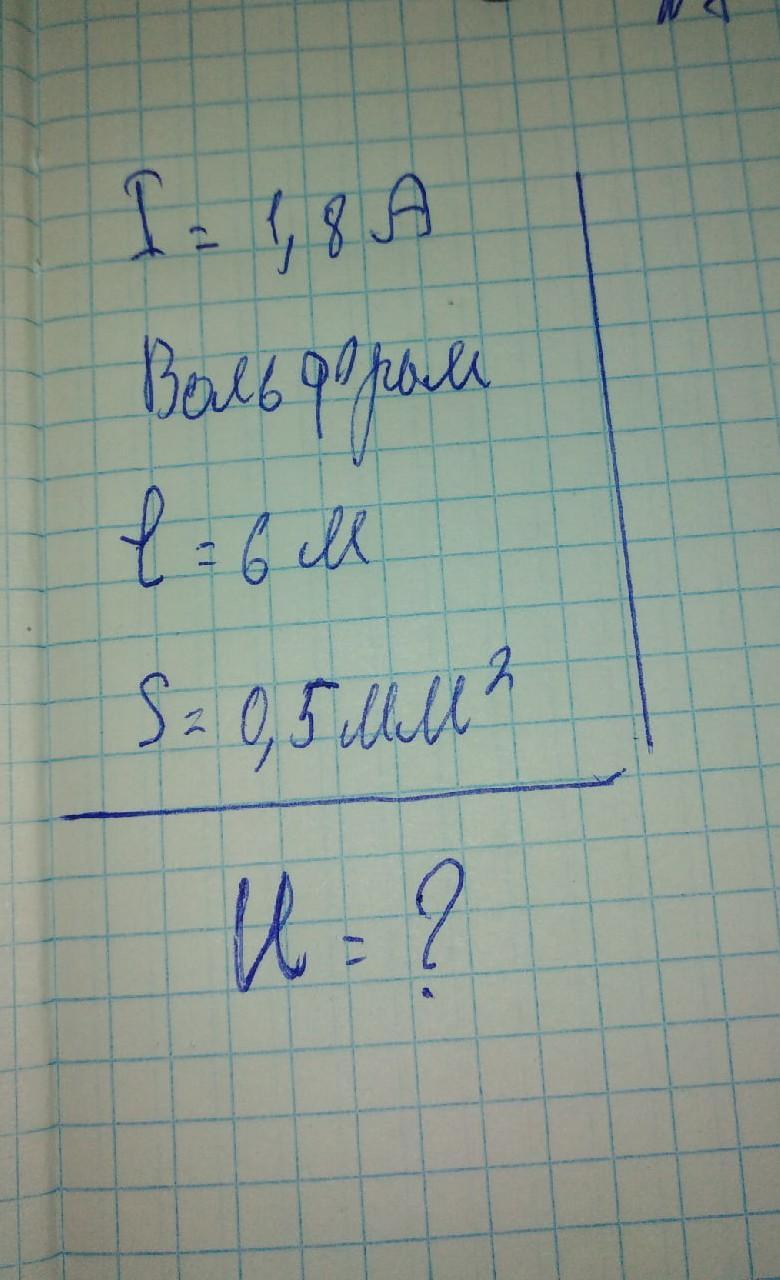 I = 1,8 А
Вольфрам
l = 6 м
S = 0,5 мм²
U = ?